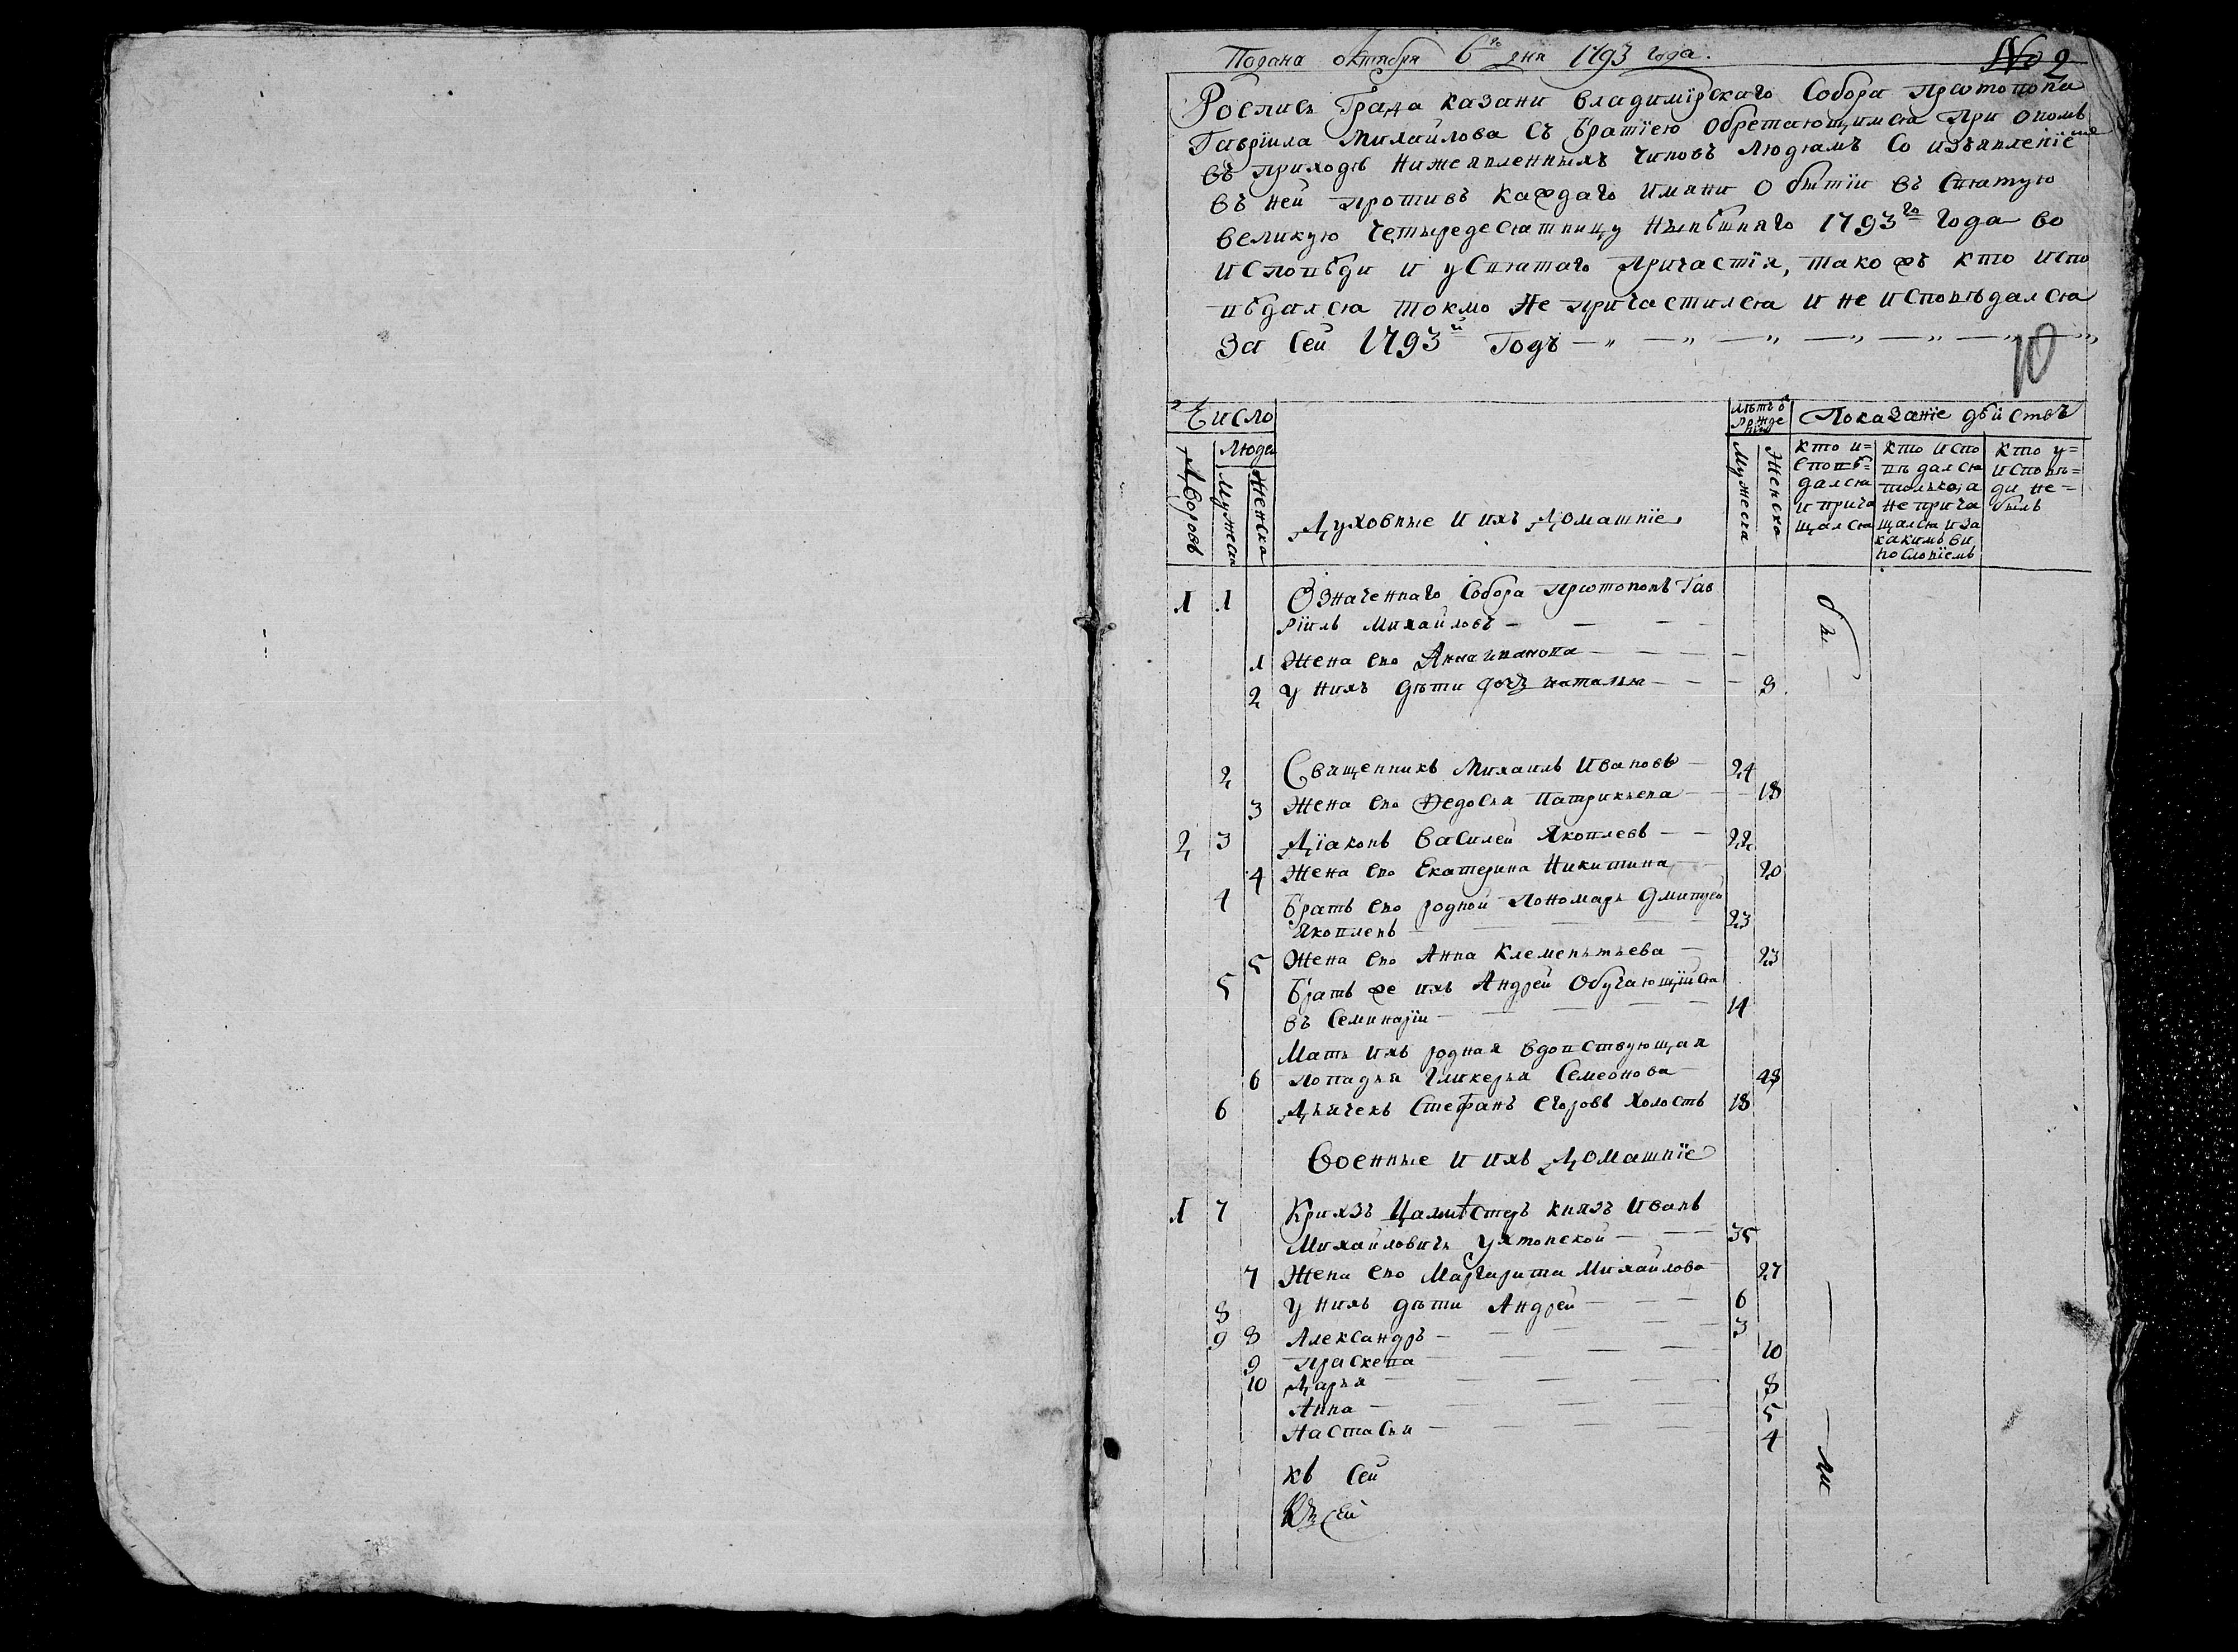 Подана октября 6го дня 1793 года.
№ 2
Роспись Града Казани Владимїрскаго Собора протопопа
Гаврїила Михайлова Съ братїею обретающимся при ономъ
въ приходѣ нижеявленныхъ чиновъ людямъ Со изъявленїемъ
въ ней противъ каждаго имяни о бытїи въ Святую
великую Четыредесятницу нынѣшняго 1793го Года во
исповѣди и у Святаго причастїя, такожъ кто испо
вѣдался токмо не причастился и не исповѣдался
За Сей 1793й Годъ
10
Число
Дворовъ
Людей
Мужеска
Женска
Духовные и ихъ домашнїе
лѣтъ ѿ рождения
Мужеска
Женска
Показанїе дѣйствъ
кто и=
споѣ=
дался
и прича
щался
кто испо
вѣдался
только, а
не прича
щался и за
какимъ ви
пословїемъ
кто у=
исповѣ=
ди не=
былъ
1 1 Означеннаго Собора протопопъ Гав
рїилъ Михайловъ
1 Жена ево Анна Иванова
2 у нихъ дѣти дочь наталья 9
бы
2 Священникъ Михаилъ Ивановъ 24
3 Жена ево Федосья Патрикѣева 18
2 3 Дїаконъ Василей Яковлевъ 22
4 Жена ево Екатерина Никитина 20
4 Братъ ево родной пономарь Дмитрей
Яковлевъ 23
5 Жена ево Анна Клементьева 23
5 Братъ же ихъ Андрей обучающїйся
въ Семинарїи 14
Мать ихъ родная вдовствующая
6 попадья Гликерья Семеонова 48
6 Дьячекъ Стефанъ Егоровъ холостъ 18
Военные и ихъ домашнїе
1 7 Кригзъ Цалместеръ князь Иванъ
Михайловичь Ухтомской 35
7 Жена ево Маргарита Михайлова 27
8 у нихъ дѣти Андрей 6
9 8 Александръ 3
9 Прасковa 10
10 Дарья 8
Анна 5
Настасья 4
ли
Къ Сей
Къ Сей